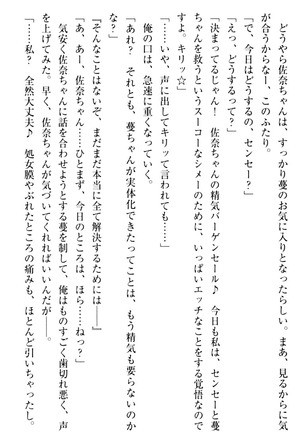 どうやら佐奈ちゃんは、すっかり蔓のお気に入りとなったらしい。まあ、見るからに気
が合うからなー、このふたり。
「で、今日はどうするの、センセー?」
「えっ、どうするって?」
「決まってるじゃん! 佐奈ちゃんの精気バーゲンセール♪ 今日も私は、センセーと蔓
ちゃんを救うというスーコーなシメーのために、いっぱいエッチなことをする覚悟なので
すよ。キリッ☆」
「……いや、声に出してキリッて言われても……」
俺の口は、急速に重くなっていく。
「あれ? それとも、蔓ちゃんが実体化できたってことは、もう精気も要らないのか
な?」
「そんなことはないぞ、まだまだ本当に全て解決するためには――」
「あ、あー、佐奈ちゃん……ひとまず、今日のところは、ほら……ねっ?」
気安く佐奈ちゃんに話を合わせようとする蔓を制して、俺はものすごく歯切れ悪く、声
を上げてみた。早く、佐奈ちゃんが気づいてくれればいいんだが――。
「……私? 全然大丈夫♪ 処女膜やぶれたところの痛みも、ほとんど引いちゃったし。